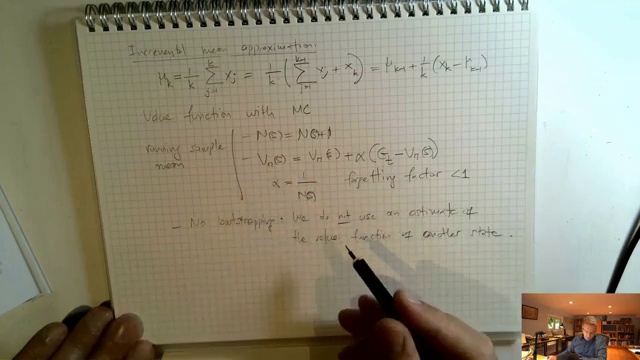 Incremental mean approximation:
μ_k = 1/k ∑_{j=1}^{k} x_j = 1/k ( ∑_{j=1}^{k-1} x_j + x_k ) = μ_{k-1} + 1/k ( x_k - μ_{k-1} )
Value function with MC
running sample mean
- N(s) = N(s)+1
- V_π(s) = V_π(s) + α ( G_t - V_π(s) )
α = 1/N(s) forgetting factor < 1
- No bootstrapping: We do not use an estimate of
the value function of another state.